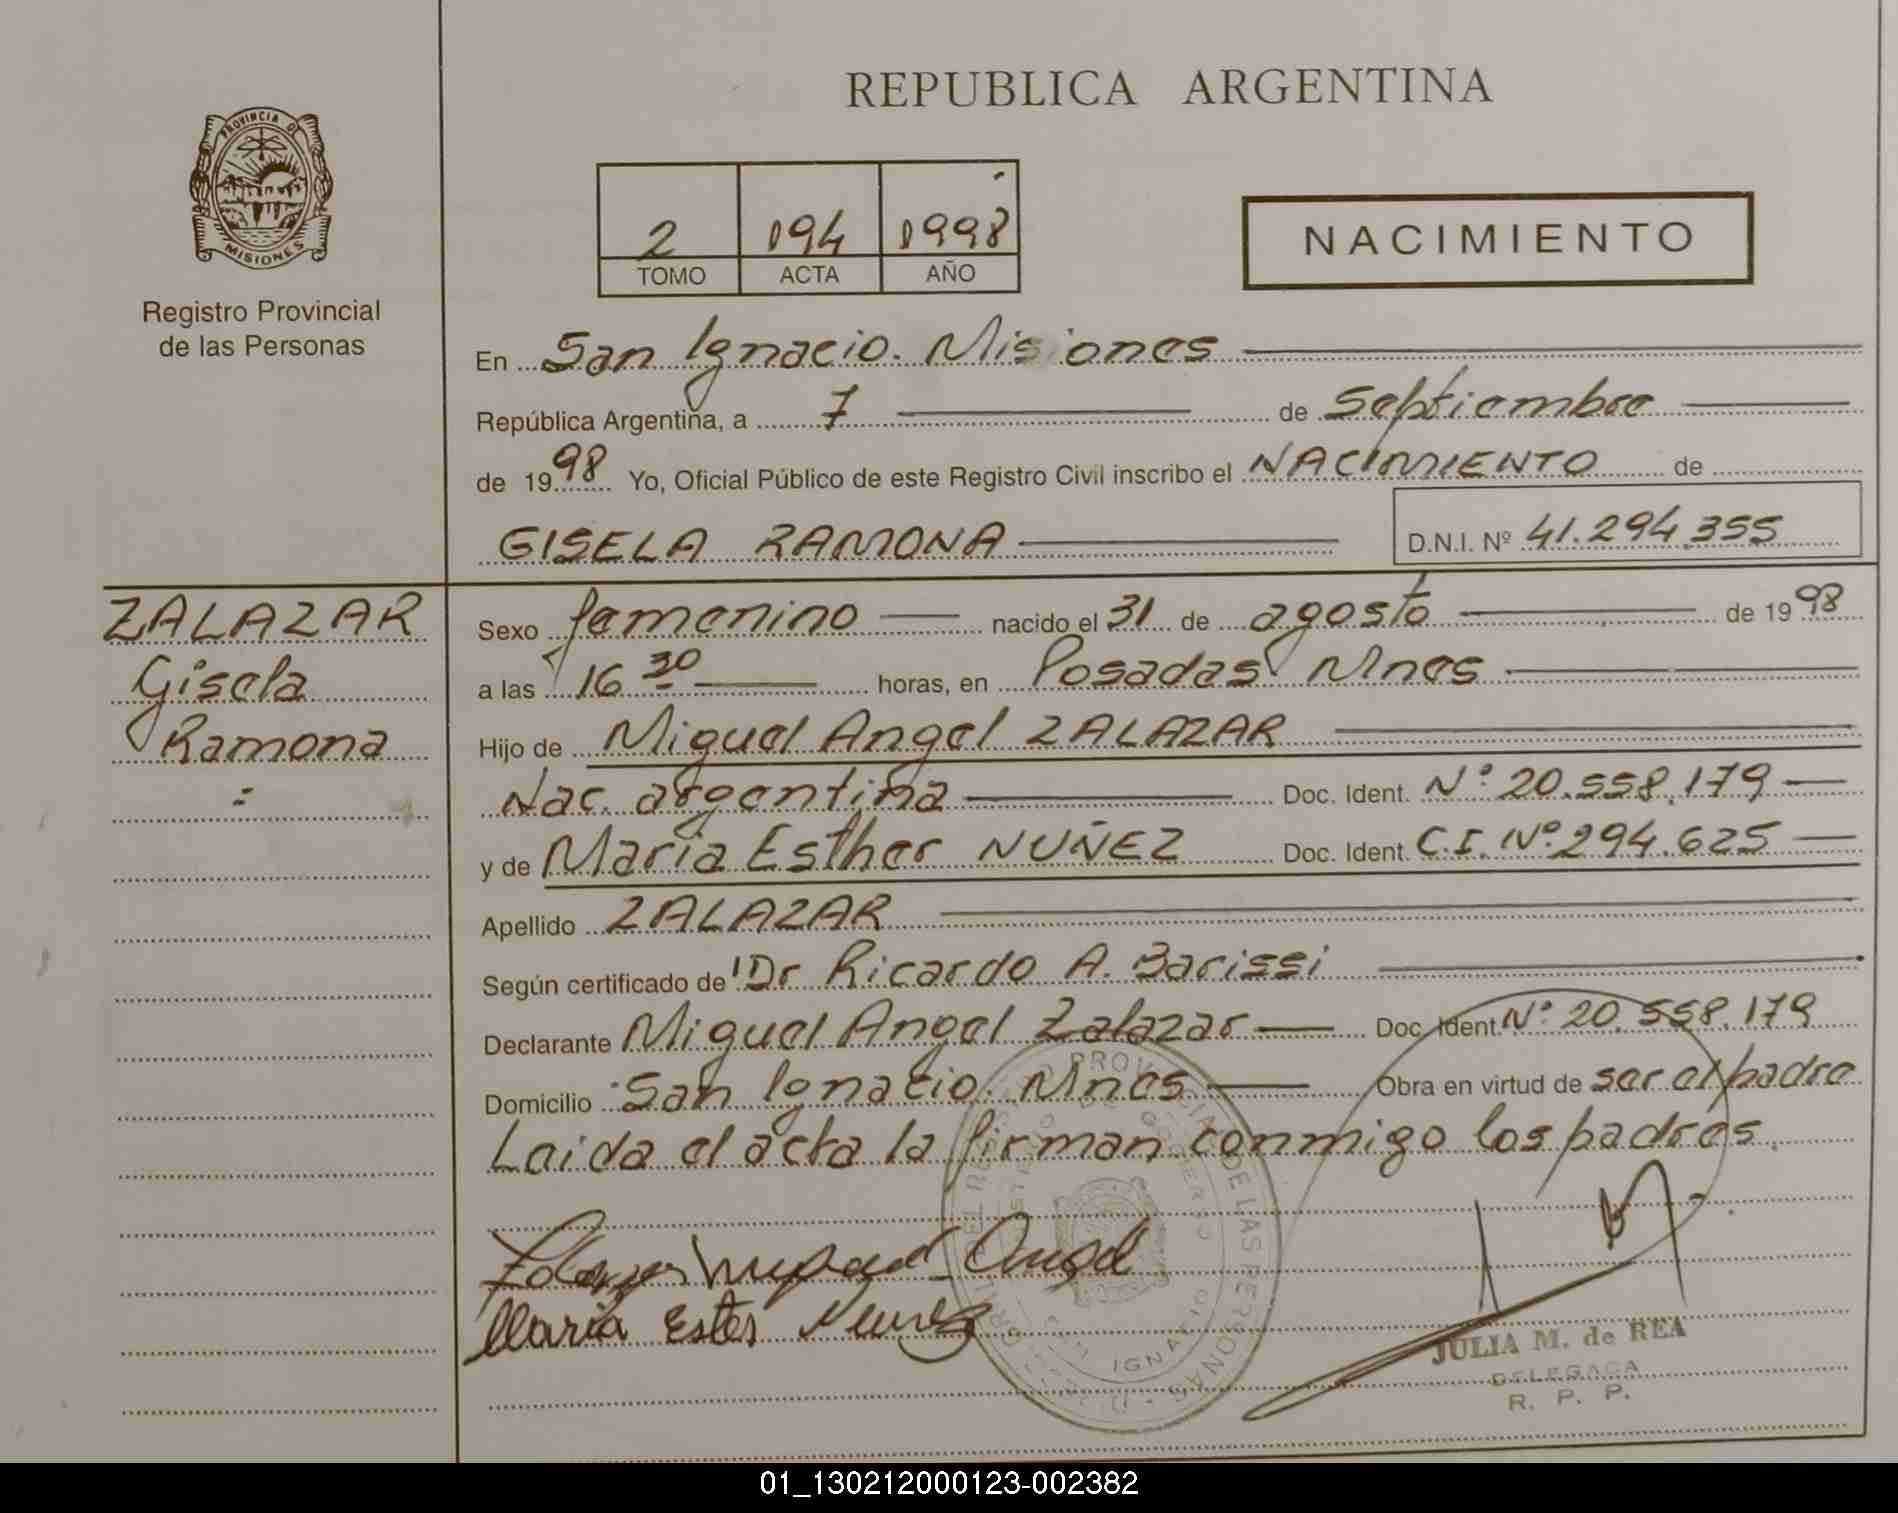 REPUBLICA ARGENTINA
PROVINCIA DE
MISIONES
Registro Provincial
de las Personas
2 194 1998
TOMO ACTA AÑO
NACIMIENTO
En San Ignacio. Misiones
República Argentina, a 7 de Septiembre
de 1998 Yo, Oficial Público de este Registro Civil inscribo el NACIMIENTO de
GISELA RAMONA D.N.I. Nº 41.294.355
ZALAZAR
Gisela
Ramona
Sexo femenino nacido el 31 de agosto de 1998
a las 16 30 horas, en Posadas Mnes
Hijo de Miguel Angel ZALAZAR
Nac. argentina Doc. Ident. Nº 20.558.179
y de María Esther NUÑEZ Doc. Ident. C.I. Nº 294.625
Apellido ZALAZAR
Según certificado de Dr Ricardo A. Barissi
Declarante Miguel Angel Zalazar Doc. Ident. Nº 20.558.179
Domicilio San Ignacio. Mnes Obra en virtud de ser el padre
Leida el acta la firman conmigo los padres.
Zalazar Miguel Angel
Maria Ester Nuñez
JULIA M. de REA
DELEGADA
R. P. P.
01_130212000123-002382